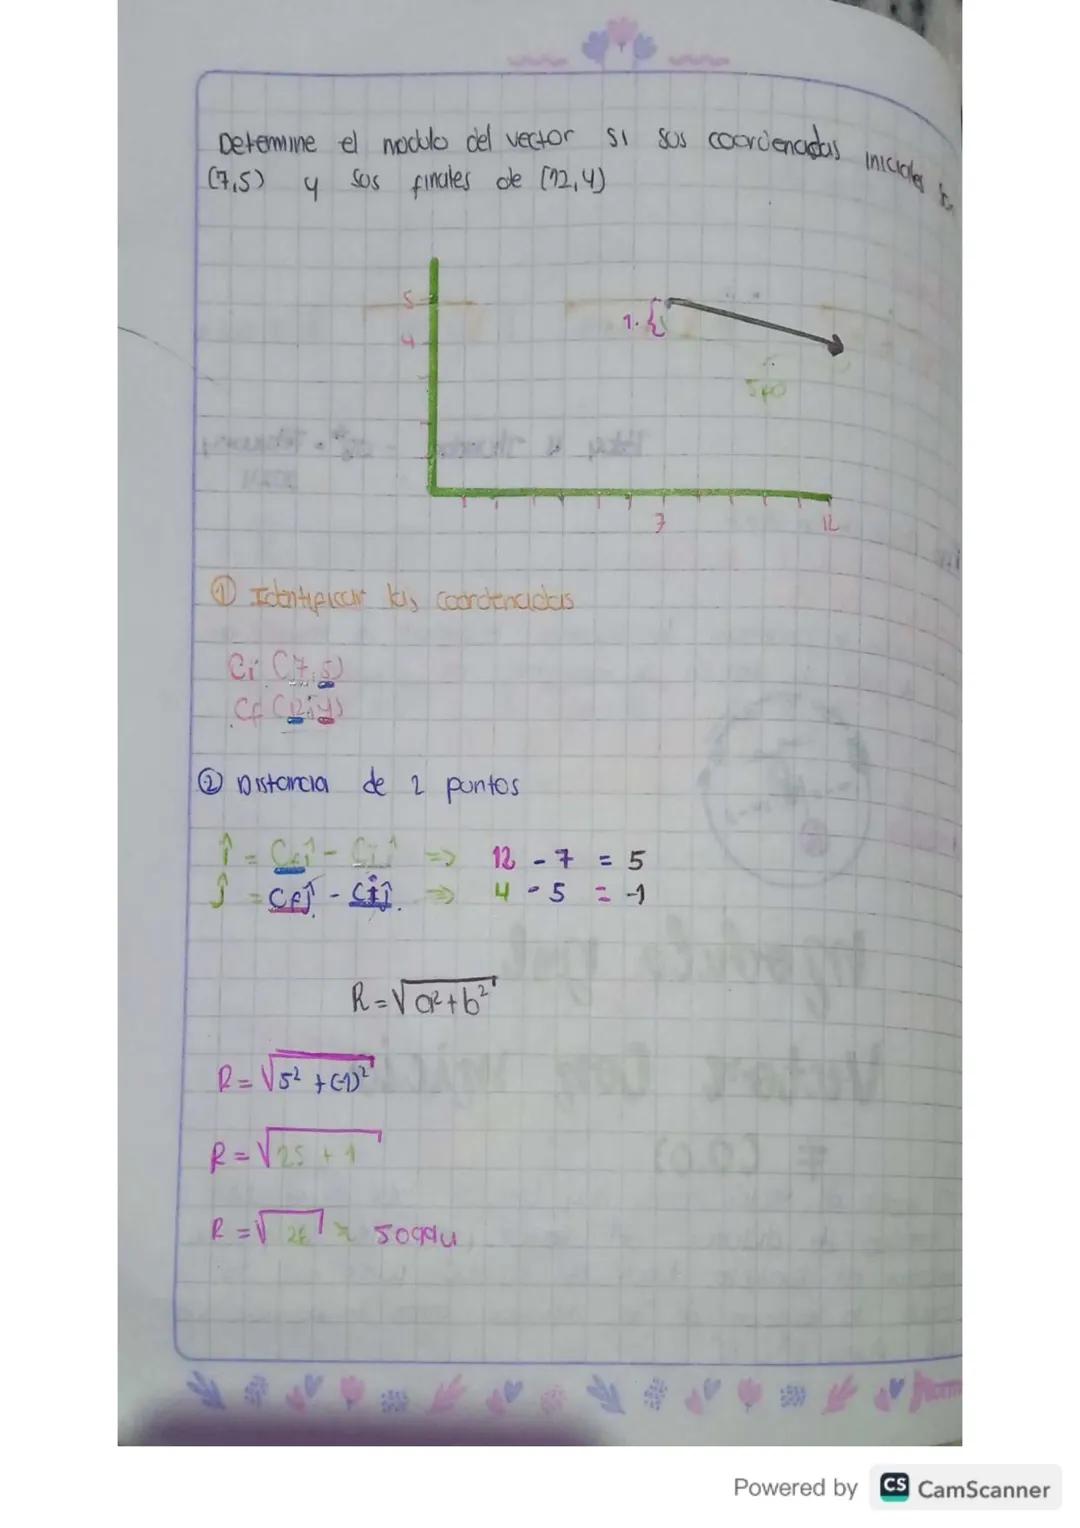 Determine el modulo del vector si sus coordenadas iniciales
(7,5) y sus finales de (12,4)
5
4
1.
7
12
① Identificar las coordenadas
Ci (7,5)
Cf (12,4)
② Distancia de 2 puntos
î = Cfî - Ciî => 12 - 7 = 5
ĵ = Cfĵ - Ciĵ => 4 - 5 = -1
R=√a²+b²
R=√5²+(-1)²
R=√25 + 1
R=√26 ≈
Powered by CS CamScanner